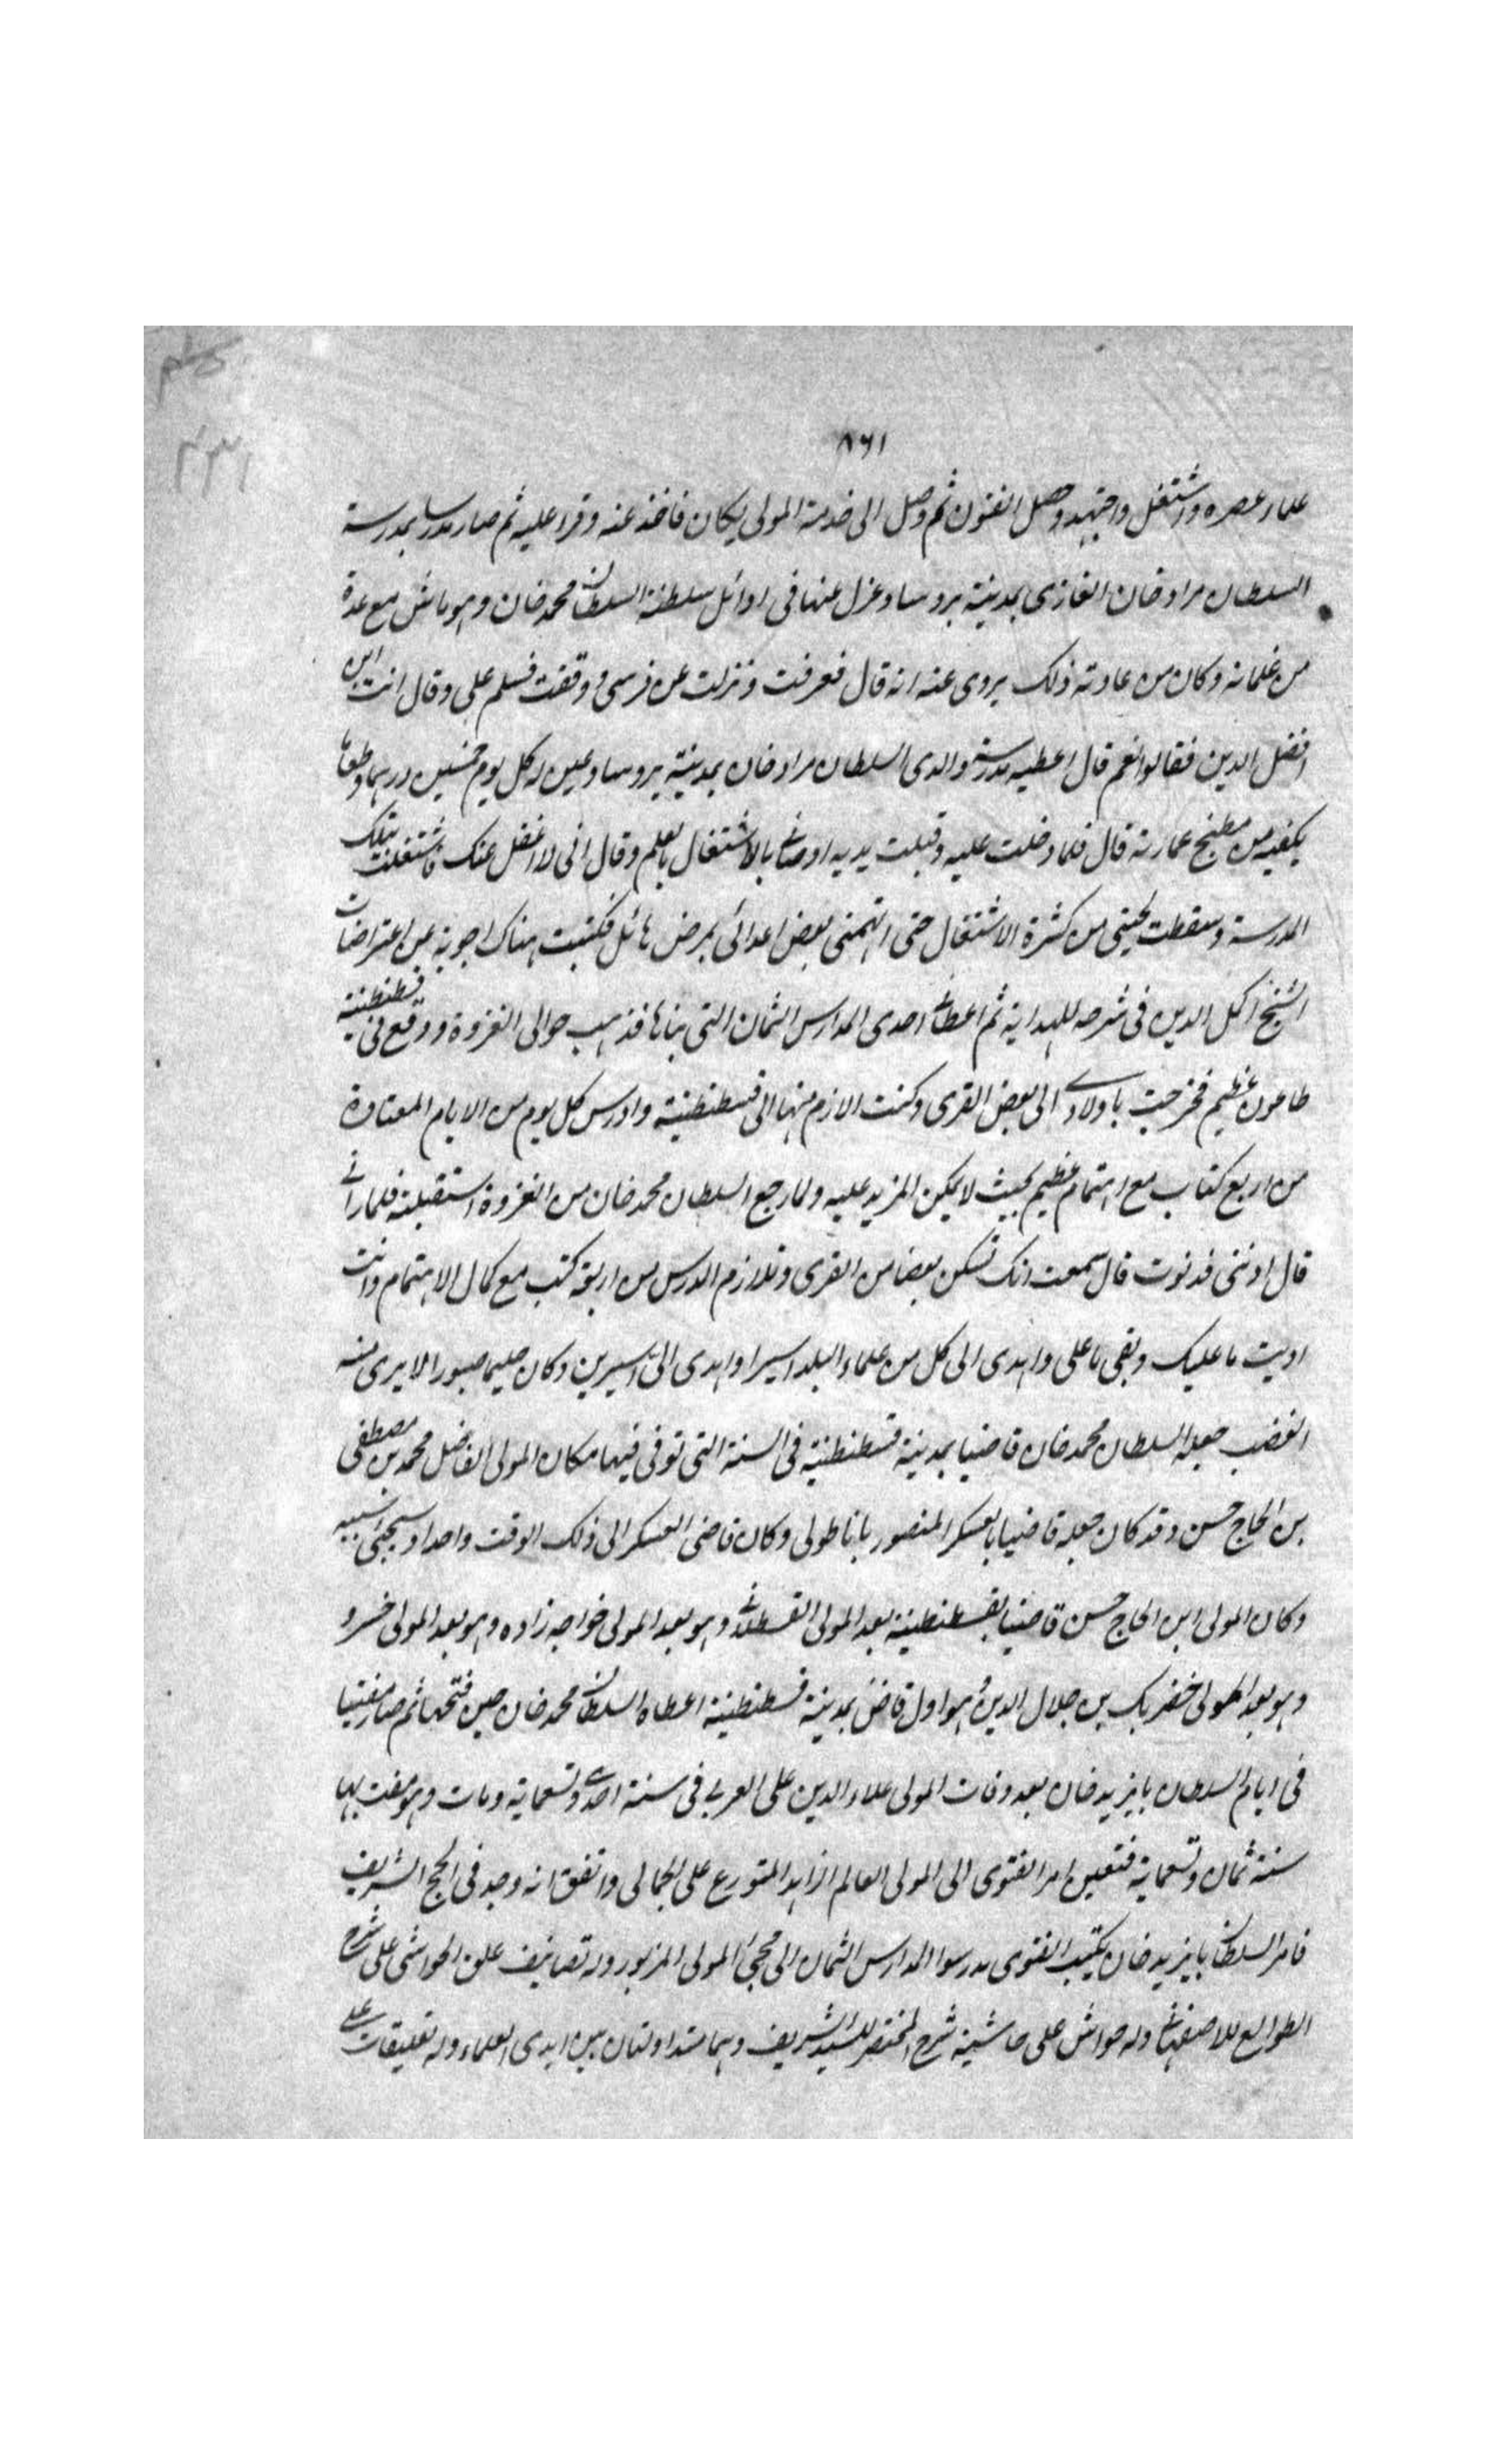 ٨٦١
علماء عصره واشتغل واجتهد وحصل الفنون ثم وصل الى خدمة المولى يكان فاخذ عنه وقراء عليه ثم صار مدرسا بمدرسة
السلطان مراد خان الغازى بمدينة بروسا وعزل عنها فى اوائل سلطنة السلطان محمد خان وهو ماش مع عدة
من غلمانه وكان من عادته ذلك يروى عنه انه قال فعرفت ونزلت عن فرسى ووقفت فسلم على وقال انت ابن
افضل الدين فقالوا نعم قال اعطيه مدرسة والدى السلطان مراد خان بمدينة بروسا وعين له كل يوم خمسين درهما وطعاما
يكفيه من مطبخ عمارته قال فلما دخلت عليه وقبلت يديه اوصانى بالاشتغال بالعلم وقال انى لا اغفل عنك فاشتغلت بتلك
المدرسة وسقطت لحيتى من كثرة الاشتغال حتى اتهمنى بعض اعدائى بمرض هائل فكتبت هناك اجوبة عن اعتراضات
الشيخ اكمل الدين فى شرحه للهداية ثم اعطانى احدى المدارس الثمان التى بناها فذهب حوالى الغزوة ووقع فى قسطنطنية
طاعون عظيم فخرجت باولادى الى بعض القرى وكنت الازم منها الى قسطنطنية وادرس كل يوم من الايام المعتادة
من اربع كتاب مع اهتمام عظيم بحيث لا يمكن المزيد عليه ولما رجع السلطان محمد خان من الغزوة استقبلته فلما رآنى
قال ادننى فدنوت قال سمعت انك تسكن بعضا من القرى وتلازم الدرس من اربعة كتب مع كمال الاهتمام وانت
اديت ما عليك وبقى ما على واهدى الى كل من علماء البلد اسيرا واهدى الىّ اسيرين وكان حليما صبورا لا يرى منه
الغضب جعله السلطان محمد خان قاضيا بمدينة قسطنطنية فى السنة التى توفى فيها مكان المولى الفاضل محمد بن مصطفى
بن الحاج حسن وقد كان جعله قاضيا بالعسكر المنصور باناطولى وكان قاضى العسكر الى ذلك الوقت واحدا وسيجئ
وكان المولى ابن الحاج حسن قاضيا بقسطنطينية بعد المولى القسطلانى وهو بعد المولى خواجه زاده وهو بعد المولى خسرو
وهو بعد المولى خضر بك بن جلال الدين وهو اول قاض بمدينة قسطنطنية اعطاه السلطان محمد خان حين فتحها ثم صار مفتيا
فى ايام السلطان بايزيد خان بعد وفات المولى علاء الدين على العربى فى سنة احدى وتسعماية ومات وهو مفت بها
سنة ثمان وتسعماية فتعين امر الفتوى الى المولى العالم الزاهد المتورع على الجمالى واتفق انه وجد فى الحج الشريف
فامر السلطان بايزيد خان يكتب الفتوى مدرسوا المدارس الثمان الى مجئ المولى المزبور وله تصانيف على الحواشى على شرح
الطوالع للاصفهانى وله حواش على حاشية شرح المختصر للسيد الشريف وهما متداولتان بين ايدى العلماء وله تعليقات على